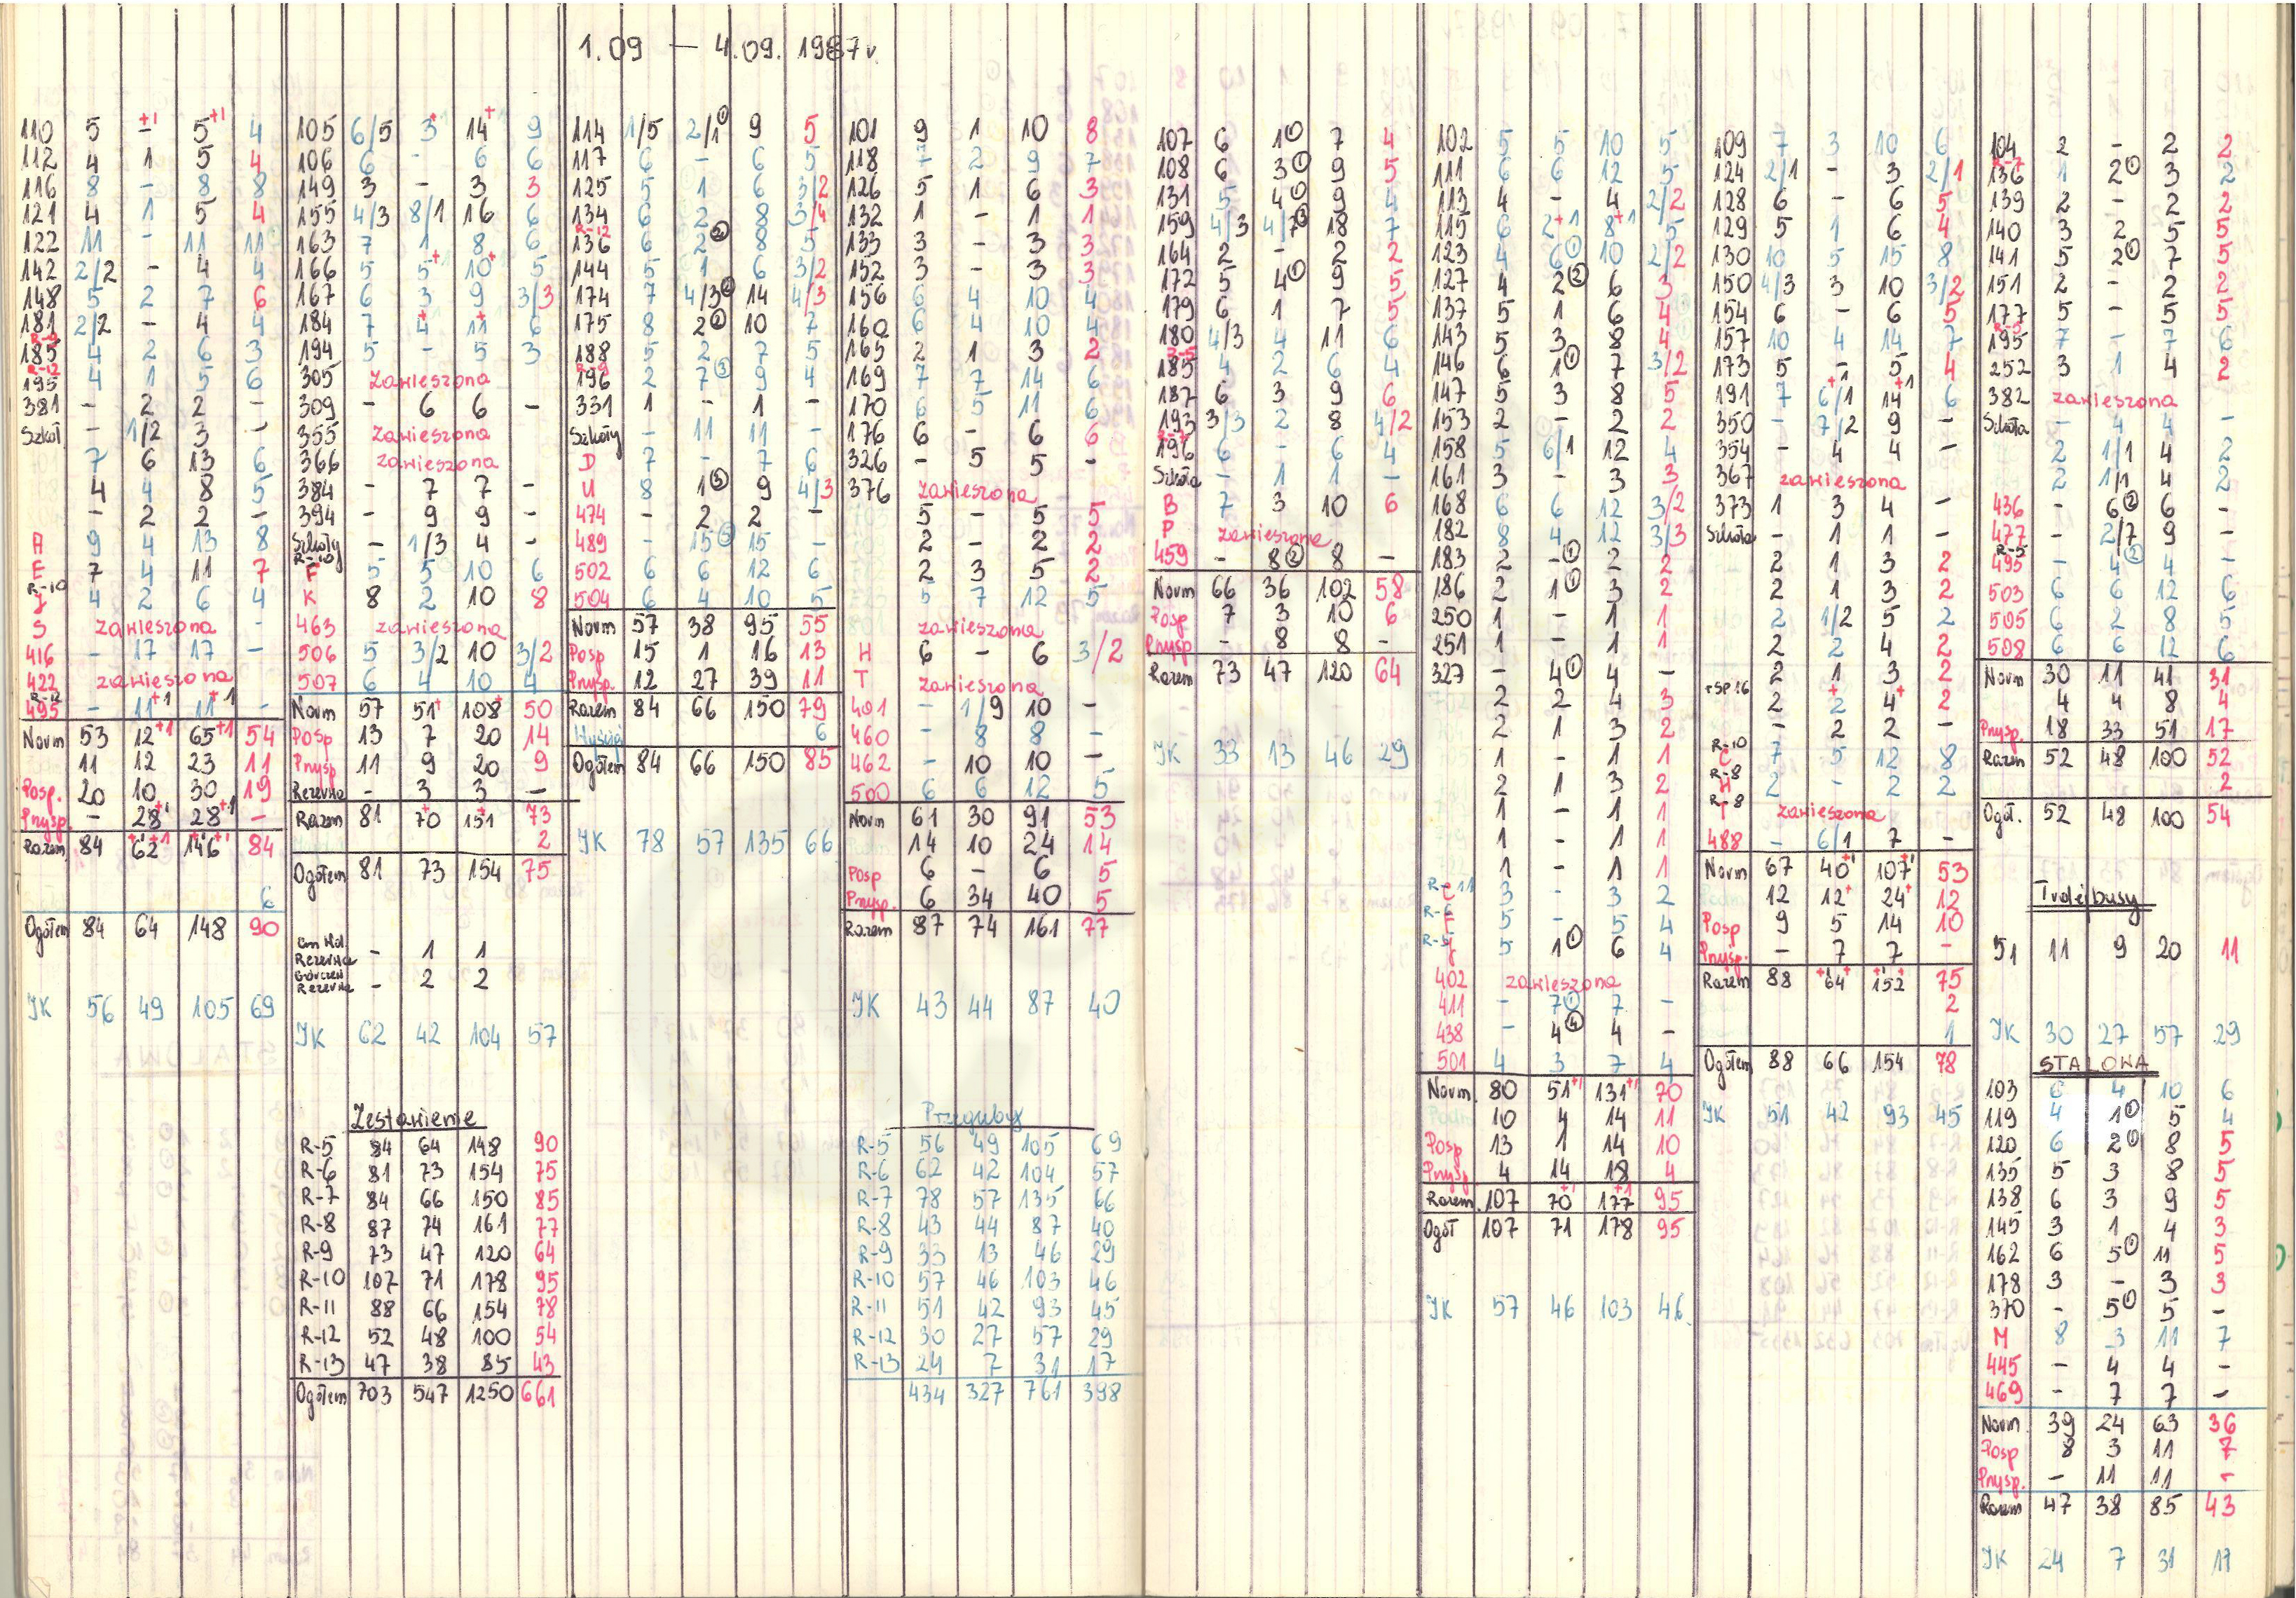 1.09 — 4.09. 1987r.
110 5 - +1 5 +1 4
112 4 1 5 4
116 8 - 8 8
121 4 1 5 4
122 11 - 11 11
142 2/2 - 4 4
148 5 2 7 6
181 2/2 - 4 4
185 4 2 6 3
R-12
195 4 1 5 6
381 - 2 2 -
Szkoł - 1/2 3 -
7 6 13 6
4 4 8 5
- 2 2 -
A 9 4 13 8
E 7 4 11 7
R-10
J 4 2 6 4
S zawieszona -
416 - 17 17 -
422 zawieszona
R-12
495 - 11 +1 11 +1 -
Norm 53 12 +1 65 +1 54
11 12 23 11
Posp. 20 10 30 19
Przysp. - 28 +1 28 +1 -
Razem 84 62 +1 +1 146 +1 +1 84
6
Ogółem 84 64 148 90
JK 56 49 105 69
105 6/5 3+ 14+ 9
106 6 - 6 6
149 3 - 3 3
155 4/3 8/1 16 6
163 7 1 8 6
166 5 5+ 10+ 5
167 6 3 9 3/3
184 7 4+ 11+ 6
194 5 - 5 3
305 zawieszona
309 - 6 6 -
355 zawieszona
366 zawieszona
384 - 7 7 -
394 - 9 9 -
Szkoły - 1/3 4 -
R-10
F 5 5 10 6
K 8 2 10 8
463 zawieszona
506 5 3/2 10 3/2
507 6 4 10 4
Norm 57 51+ 108+ 50
Posp 13 7 20 14
Przysp 11 9 20 9
Rezerwa - 3 3 -
Razem 81 70+ 151+ 73
2
Ogółem 81 73 154 75
Rezerwa - 1 1
Rezerwa - 2 2
JK 62 42 104 57
Zestawienie
R-5 84 64 148 90
R-6 81 73 154 75
R-7 84 66 150 85
R-8 87 74 161 77
R-9 73 47 120 64
R-10 107 71 178 95
R-11 88 66 154 78
R-12 52 48 100 54
R-13 47 38 85 43
Ogółem 703 547 1250 661
114 1/5 2/1① 9 5
117 6 - 6 5
125 5 1 6 3/2
134 6 2 8 3/4
R-12
136 6 2② 8 5
144 5 1 6 3/2
174 7 4/3② 14 4/3
175 8 2② 10 7
188 5 2 7 5
R-9
196 2 7③ 9 4
331 1 - 1 -
Szkoły - 11 11 -
D 7 - 7 6
U 8 1③ 9 4/3
474 - 2 2 -
489 - 15③ 15 -
502 6 6 12 6
504 6 4 10 5
Norm 57 38 95 55
Posp 15 1 16 13
Przysp. 12 27 39 11
Razem 84 66 150 79
Wyścigi 6
Ogółem 84 66 150 85
JK 78 57 135 66
101 9 1 10 8
118 7 2 9 7
126 5 1 6 3
132 1 - 1 1
133 3 - 3 3
152 3 - 3 3
156 6 4 10 4
160 6 4 10 4
165 2 1 3 2
169 7 7 14 6
170 6 5 11 6
176 6 - 6 6
326 - 5 5 -
376 zawieszona
5 - 5 5
2 - 2 2
2 3 5 2
5 7 12 5
zawieszona
H 6 - 6 3/2
T zawieszona
401 - 1/9 10 -
460 - 8 8 -
462 - 10 10 -
500 6 6 12 5
Norm 61 30 91 53
14 10 24 14
Posp 6 - 6 5
Przysp. 6 34 40 5
Razem 87 74 161 77
JK 43 44 87 40
Przeguby
R-5 56 49 105 69
R-6 62 42 104 57
R-7 78 57 135 66
R-8 43 44 87 40
R-9 33 13 46 29
R-10 57 46 103 46
R-11 51 42 93 45
R-12 30 27 57 29
R-13 24 7 31 17
434 327 761 398
107 6 1① 7 4
108 6 3① 9 5
131 5 4① 9 4
159 4/3 4/7③ 18 7
164 2 - 2 2
172 5 4① 9 5
179 6 1 7 5
180 4/3 4 11 6
R-5
185 4 2 6 4
187 6 3 9 6
193 3/3 2 8 4/2
196 6 - 6 4
Szkoła - 1 1 -
B 7 3 10 6
P zawieszona
459 - 8② 8 -
Norm 66 36 102 58
Posp 7 3 10 6
Przysp - 8 8 -
Razem 73 47 120 64
JK 33 13 46 29
102 5 5 10 5
111 6 6 12 5
113 4 - 4 2/2
115 6 2+1 8+1 5
123 4 6① 10 2/2
127 4 2② 6 3
137 5 1 6 4
143 5 3 8 4
146 6 1① 7 3/2
147 5 3 8 5
153 2 - 2 2
158 5 6/1 12 4
161 3 - 3 3
168 6 6 12 3/2
182 8 4 12 3/3
183 2 -① 2 2
186 2 1① 3 2
250 1 - 1 1
251 1 - 1 1
327 - 4① 4 -
2 2 4 3
2 1 3 2
1 - 1 1
2 1 3 2
1 - 1 1
1 - 1 1
1 - 1 1
R-11
C 3 - 3 2
R-6
F 5 - 5 4
R-5
J 5 1① 6 4
402 zawieszona
411 - 7① 7 -
438 - 4④ 4 -
501 4 3 7 4
Norm. 80 51 +1 131 +1 70
Podm 10 4 14 11
Posp 13 1 14 10
Przysp 4 14 18 4
Razem 107 70 +1 177 +1 95
Ogół 107 71 178 95
JK 57 46 103 46
109 7 3 10 6
124 2/1 - 3 2/1
128 6 - 6 5
129 5 1 6 4
130 10 5 15 8
150 4/3 3 10 3/2
154 6 - 6 5
157 10 4 14 7
173 5 - 5 4
191 7 6/1 +1 14 +1 6
350 - 7/2 9 -
354 - 4 4 -
367 zawieszona
373 1 3 4 -
Szkoła - 1 1 -
2 1 3 2
2 1 3 2
2 1/2 5 2
2 2 4 2
2 1 3 2
2 2+ 4+ 2
- 2 2 -
R-10
C 7 5 12 8
R-8
H 2 - 2 2
R-8
T zawieszona
488 - 6/1 7 -
Norm 67 40 +1 107 +1 53
12 12+ 24+ 12
Posp 9 5 14 10
Przysp. - 7 7 -
Razem 88 64 +1+ 152 +1+ 75
2
1
Ogółem 88 66 154 78
JK 51 42 93 45
104 2 - 2 2
R-7
136 1 2① 3 2
139 2 - 2 2
140 3 2 5 5
141 5 2① 7 5
151 2 - 2 2
177 5 - 5 5
R-5
195 7 - 7 6
252 3 1 4 2
382 zawieszona
Szkoła - 4 4 -
2 1/1 4 2
2 1/1 4 2
436 - 6② 6 -
477 - 2/7 9 -
R-5
495 - 4② 4 -
503 6 6 12 6
505 6 2 8 5
508 6 6 12 6
Norm 30 11 41 31
4 4 8 4
Przysp. 18 33 51 17
Razem 52 48 100 52
2
Ogół. 52 48 100 54
Trolejbusy
51 11 9 20 11
JK 30 27 57 29
STALOWA
103 6 4 10 6
119 4 1① 5 4
120 6 2① 8 5
135 5 3 8 5
138 6 3 9 5
145 3 1 4 3
162 6 5① 11 5
178 3 - 3 3
370 - 5① 5 -
M 8 3 11 7
445 - 4 4 -
469 - 7 7 -
Norm 39 24 63 36
Posp 8 3 11 7
Przysp. - 11 11 -
Razem 47 38 85 43
JK 24 7 31 17